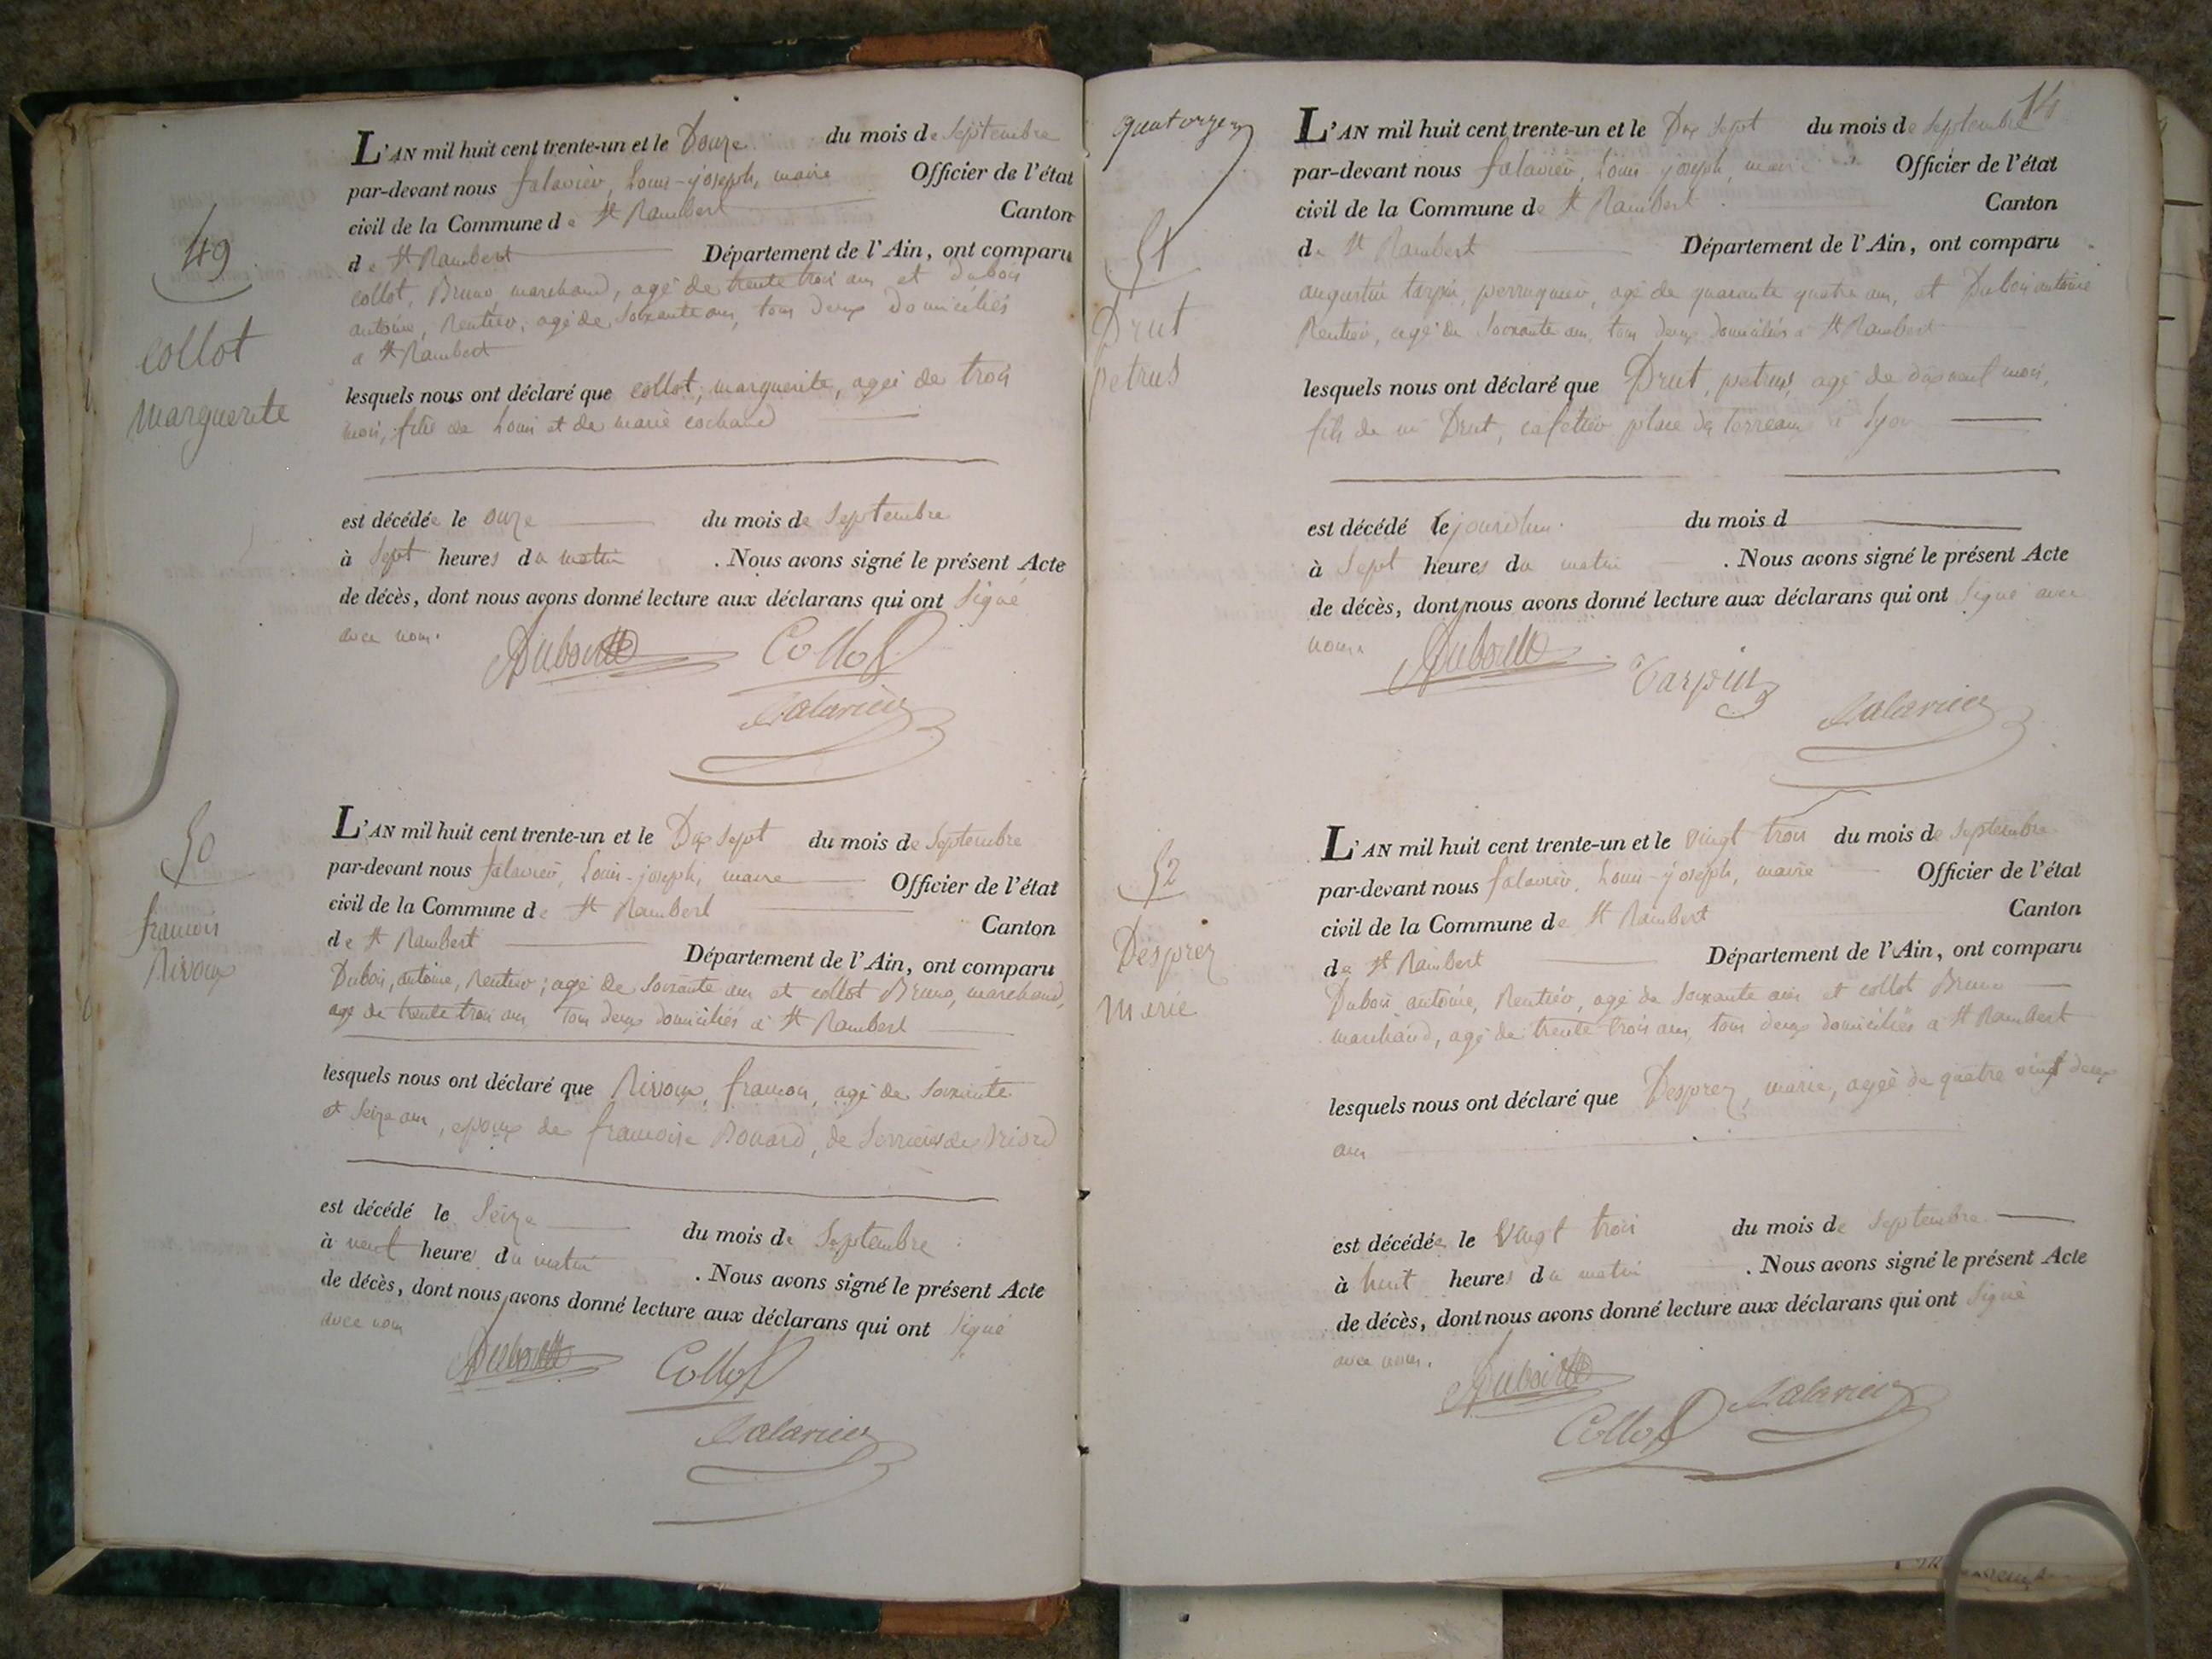 49
collot
marguerite
L'AN mil huit cent trente-un et le Douze du mois de Septembre
par-devant nous falavier, Louis-joseph, maire Officier de l'état
civil de la Commune de St Rambert Canton
de St Rambert Département de l'Ain, ont comparu
collot, Bruno marchand, agé de trente trois ans et dubois
antoine, Rentier, agé de Soixante ans, tous deux domiciliés
a St Rambert
lesquels nous ont déclaré que collot, marguerite, agée de trois
mois, fille de Louis et de marie cochand
est décédée le onze du mois de Septembre
à Sept heures du matin . Nous avons signé le présent Acte
de décès, dont nous avons donné lecture aux déclarans qui ont Signé
avec nous.
Dubois Collot
falavier
50
francois
Rivoux
L'AN mil huit cent trente-un et le Dix Sept du mois de Septembre
par-devant nous falavier, Louis-joseph, maire Officier de l'état
civil de la Commune de St Rambert Canton
de St Rambert Département de l'Ain, ont comparu
Dubois, antoine, Rentier; agé de Soixante ans et collot Bruno, marchand,
agé de trente trois ans, tous deux domiciliés a St Rambert
lesquels nous ont déclaré que Rivoux, francois, agé de Soixante
et Seize ans, epoux de francoise Bouard, de Serrieres de Briord
est décédé le Seize du mois de Septembre
à neuf heures du matin . Nous avons signé le présent Acte
de décès, dont nous avons donné lecture aux déclarans qui ont Signé
avec nous
Dubois Collot
falavier
quatorze 14
51
Drut
petrus
L'AN mil huit cent trente-un et le Dix Sept du mois de Septembre
par-devant nous falavier, Louis joseph, maire Officier de l'état
civil de la Commune de St Rambert Canton
de St Rambert Département de l'Ain, ont comparu
augustin tarpin, perruquier, agé de quarante quatre ans, et Dubois antoine
Rentier, agé de Soixante ans, tous deux domiciliés a St Rambert
lesquels nous ont déclaré que Drut, petrus, agé de dix neuf mois,
fils de Drut, cafetier place des terreaux a Lyon
est décédé le jourdhui du mois d
à Sept heures du matin . Nous avons signé le présent Acte
de décès, dont nous avons donné lecture aux déclarans qui ont Signé avec
nous.
Dubois Tarpin
falavier
52
Desprez
marie
L'AN mil huit cent trente-un et le vingt trois du mois de Septembre
par-devant nous falavier, Louis-joseph, maire Officier de l'état
civil de la Commune de St Rambert Canton
de St Rambert Département de l'Ain, ont comparu
Dubois antoine, Rentier, agé de Soixante ans et collot Bruno
marchand, agé de trente trois ans, tous deux domiciliés a St Rambert
lesquels nous ont déclaré que Desprez, marie, agée de quatre vingt deux
ans
est décédée le vingt trois du mois de Septembre
à huit heures du matin . Nous avons signé le présent Acte
de décès, dont nous avons donné lecture aux déclarans qui ont Signé
avec nous.
Dubois
Collot falavier